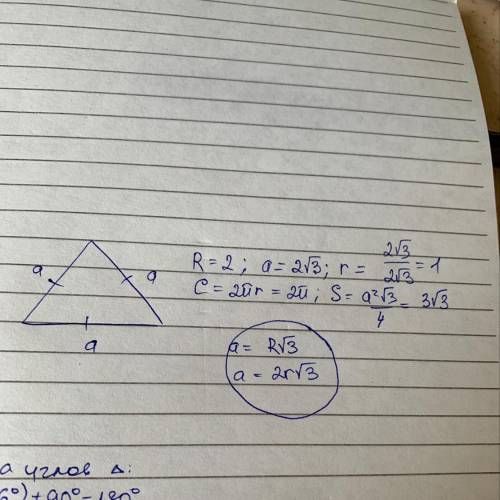 a
a
a
R = 2 ; a = 2√3 ; r = 2√3/2√3 = 1
C = 2πr = 2π ; S = a²√3/4 = 3√3
a = R√3
a = 2r√3
а углов Δ:
6°) + 90° – 180°